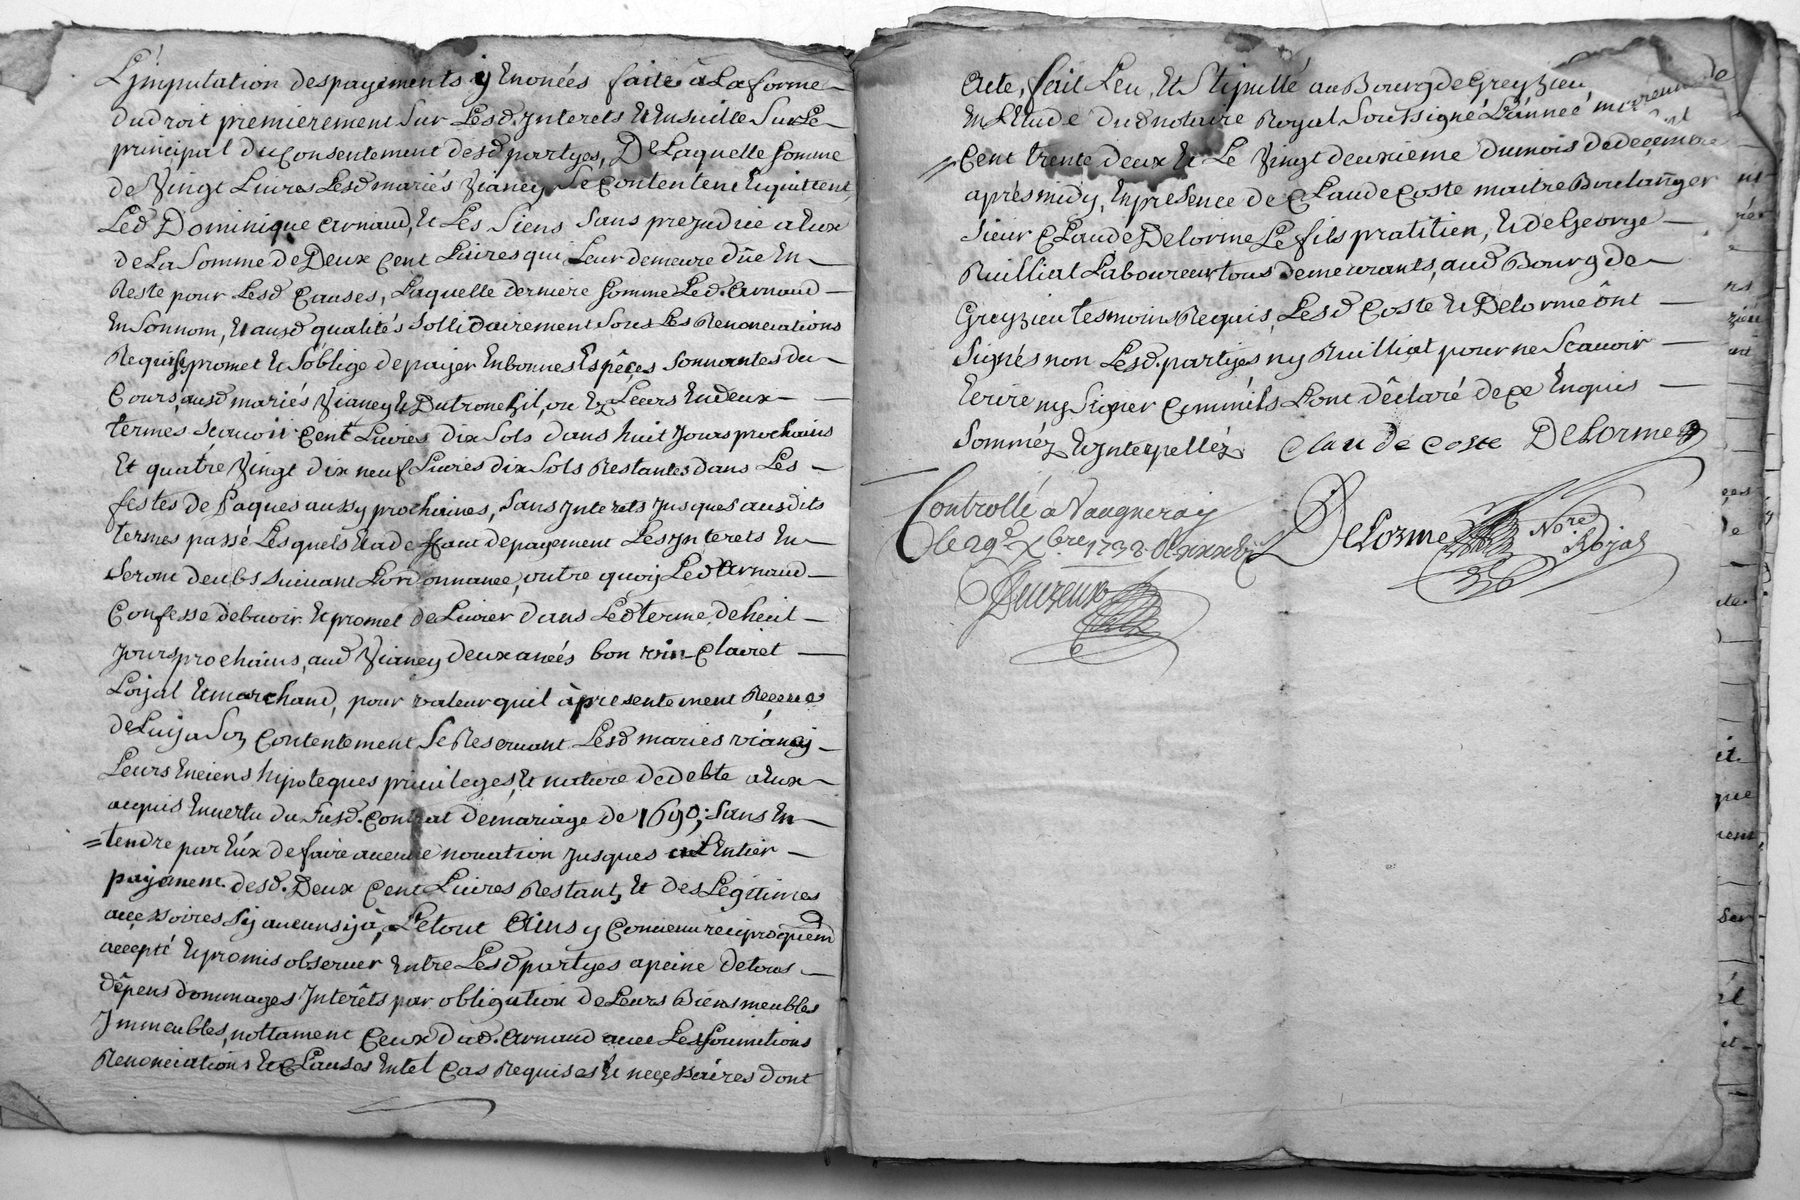 L'jmputation des payements y Enonées faite à La forme
du droit premierement Sur Lesd. jnterets Et Ensuitte Sur Le
principal du Consentement desd partyes, De Laquelle somme
de Vingt Livres Lesd mariés Vianey Se Contentent Et quittent
Led Dominique Arnaud, Et Les Siens Sans prejudice a Eux
de La Somme de Deux Cent Livres qui Leur demeure dûe En
Reste pour Lesd Causes, Laquelle derniere somme Led. Arnaud
En Son nom, Et ausd qualités Sollidairement Sous Les Renonciations
Requises promet Et S'oblige de payer En bonnes Espêces Sonnantes du
Cours, ausd mariés Vianey Et Dutronchil, ou Ez Leurs En deux
termes Scavoir Cent Livres dix Sols dans huit Jours prochains
Et quatre Vingt dix neuf Livres dix Sols Restantes dans Les
festes de Paques aussy prochaines, Sans jnterets jusques ausdits
termes passé Lesquels Et a deffaut de payement Les jnterets En
Seront deubs Suivant L'ordonnance, outre quoy Led Arnaud
Confesse debvoir Et promet de Livrer dans Led terme de huit
Jours prochains, aud Vianey deux anées bon vin Clairet
Loyal Et marchand, pour valeur quil à presentement Receue
de Luy a Son Contentement Se Reservant Lesd mariés Vianey
Leurs Enciens hipoteques privileges, Et nature de debte a Eux
acquis En vertu du Susd. Contrat de mariage de 1690; Sans En
=tendre par Eux de faire aucune novation Jusques a L'Entier
payement desd. Deux Cent Livres Restant, Et des Legitimes
accessoires Sy aucuns y à, Le tout Ainsy Convenu reciproquem
accepté Et promis observer Entre Lesd partyes a peine de tous
dêpens dommages Jnterêts par obligation de Leurs Biens meubles
Jmmeubles, nottament Ceux dud. Arnaud avec Les Soumitions
Renonciations Et Clauses En tel Cas Requises Et necessaires dont
Acte, fait Leu, Et Stipullé au Bourg de Greyzieu
En L'Etude dud notaire Royal Soussigné L'année
Cent trente deux Et Le Vingt deuxieme du mois de decembre
après midy, En presence de Claude Coste maitre Boulanger
Sieur Claude Delorme Le fils pratitien, Et de George
Ruilliat Laboureur tous demeurants, aud Bourg de
Greyzieu tesmoins Requis, Lesd Coste Et Delorme ônt
Signés non Lesd. partyes ny Ruilliat pour ne Scavoir
Ecrire ny Signer Comm'ils L'ont dêclaré de ce Enquis
Sommés Et jnterpellés. Claude Coste Delorme
Controllé a Vaugneray
le 29e Xbre 1732
Delorme Nore Royal